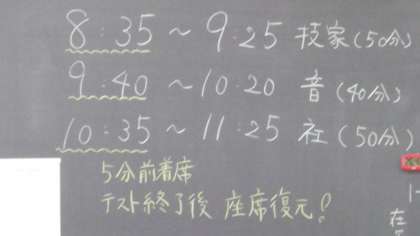 8:35～9:25 技家(50分)
9:40～10:20 音(40分)
10:35～11:25 社(50分)
5分前着席
テスト終了後 座席復元!
1-
在